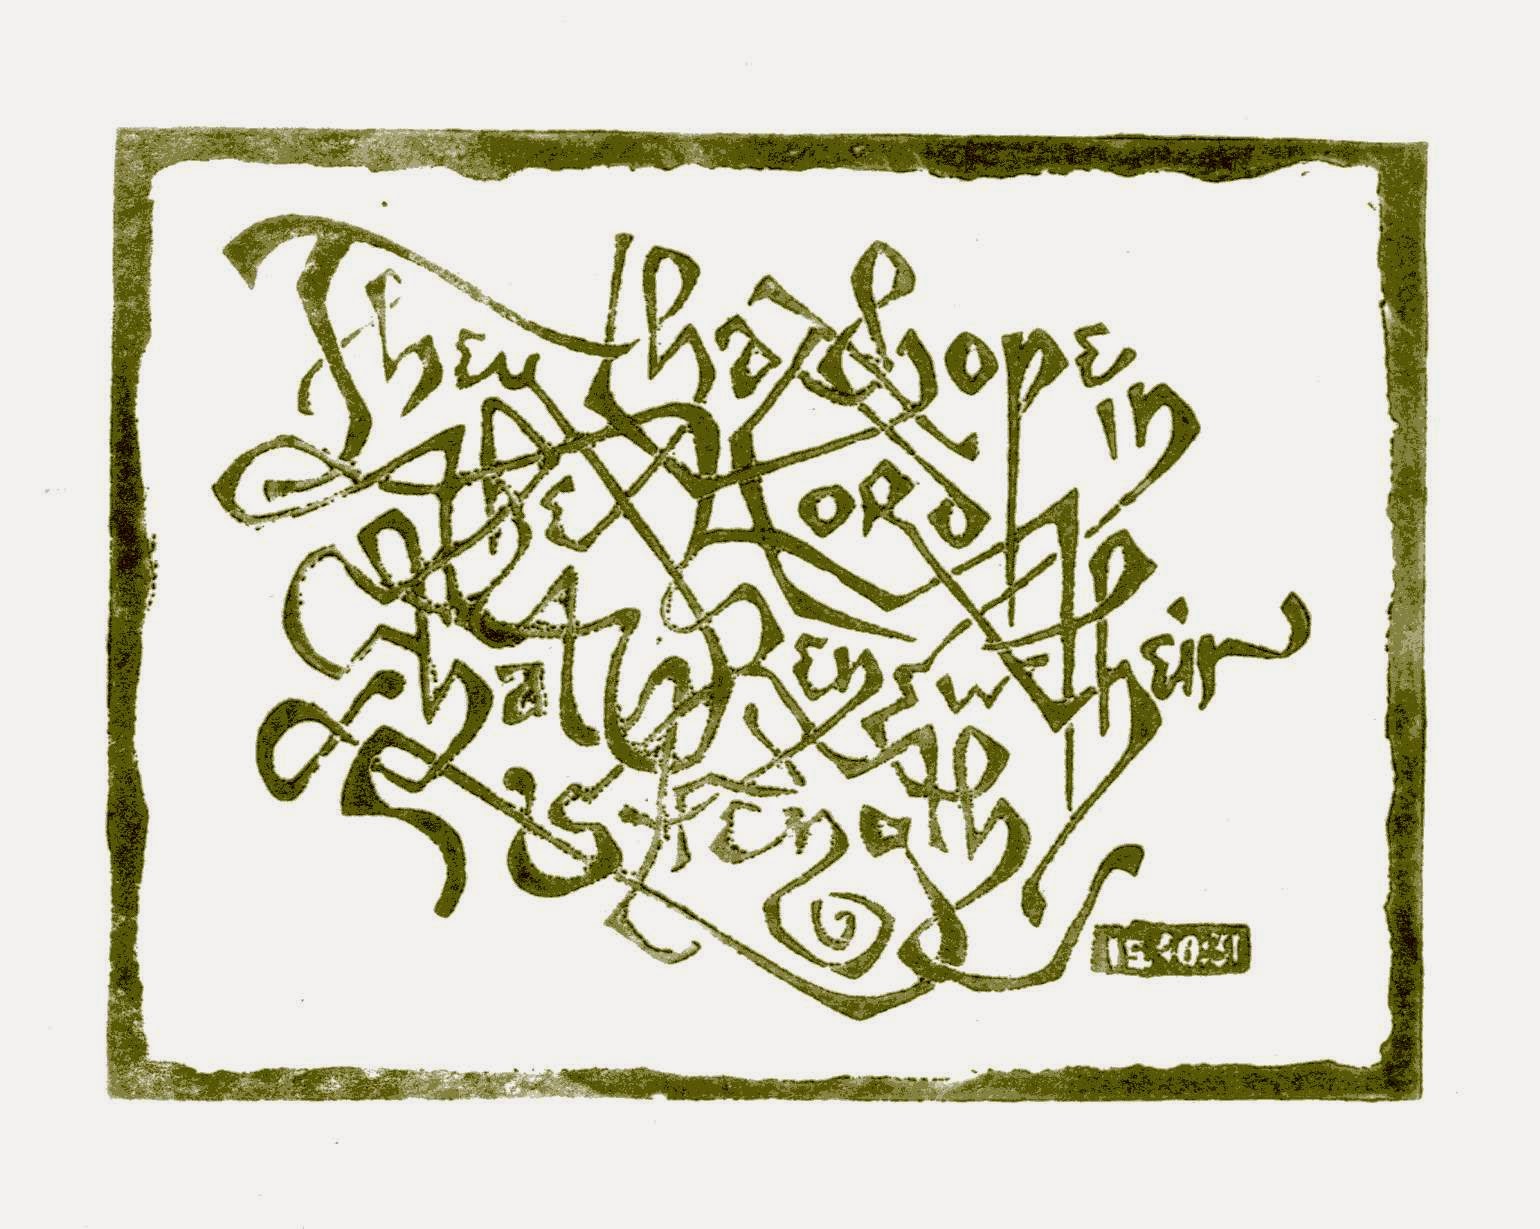 They that hope in
the Lord
Shall Renew their
strength
IS 40:31